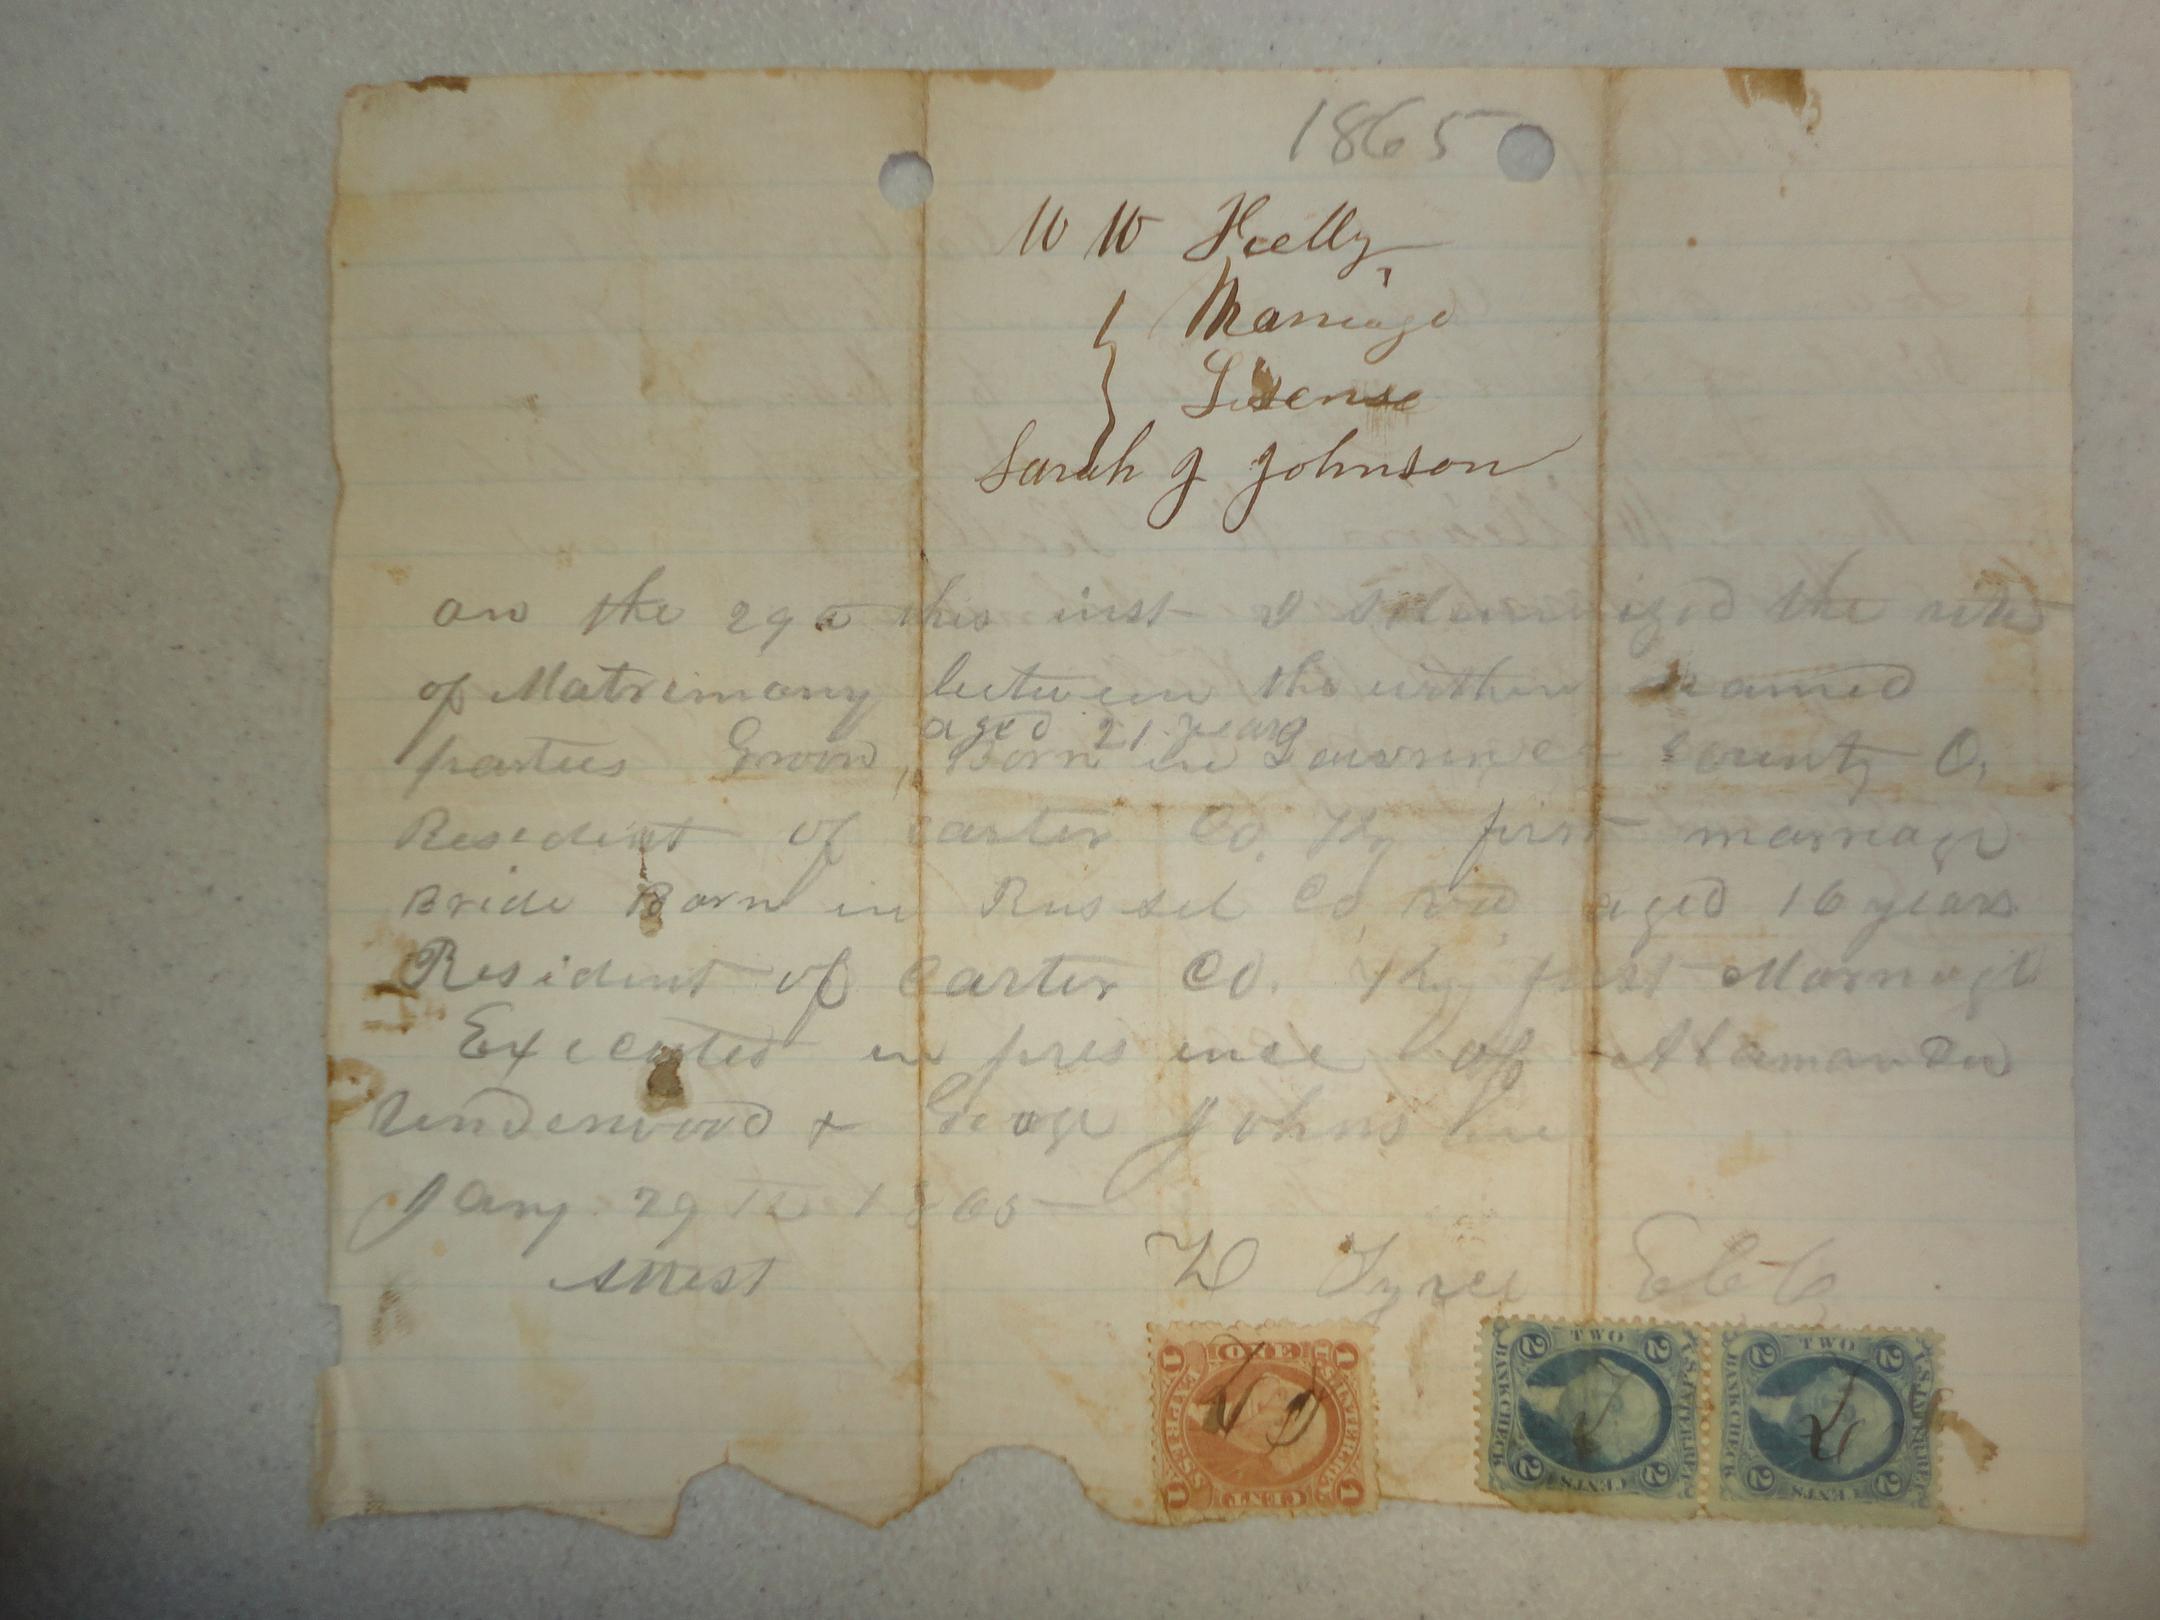 1865
W W Kelly
Marriage
Lisense
Sarah J Johnson
on the 29th this inst I Solemnized the rites
of Matrimony between the within named
aged 21 years
parties Groom, Born in Lawrence County O,
Resident of Carter Co. Ky first marriage
Bride Born in Russel Co, Va, aged 16 years
Resident of Carter Co. Ky first Marriage
Executed in presence of
Underwood & George Johnson
Jany 29th 1865
Attest
Z Tyree
ONE
1 1
EXPRESS
U.S. INTER. REV.
CENT
1 1
TWO
2 2
BANK CHECK
U.S. INTER. REV.
CENTS
2 2
TWO
2 2
BANK CHECK
U.S. INTER. REV.
CENTS
2 2